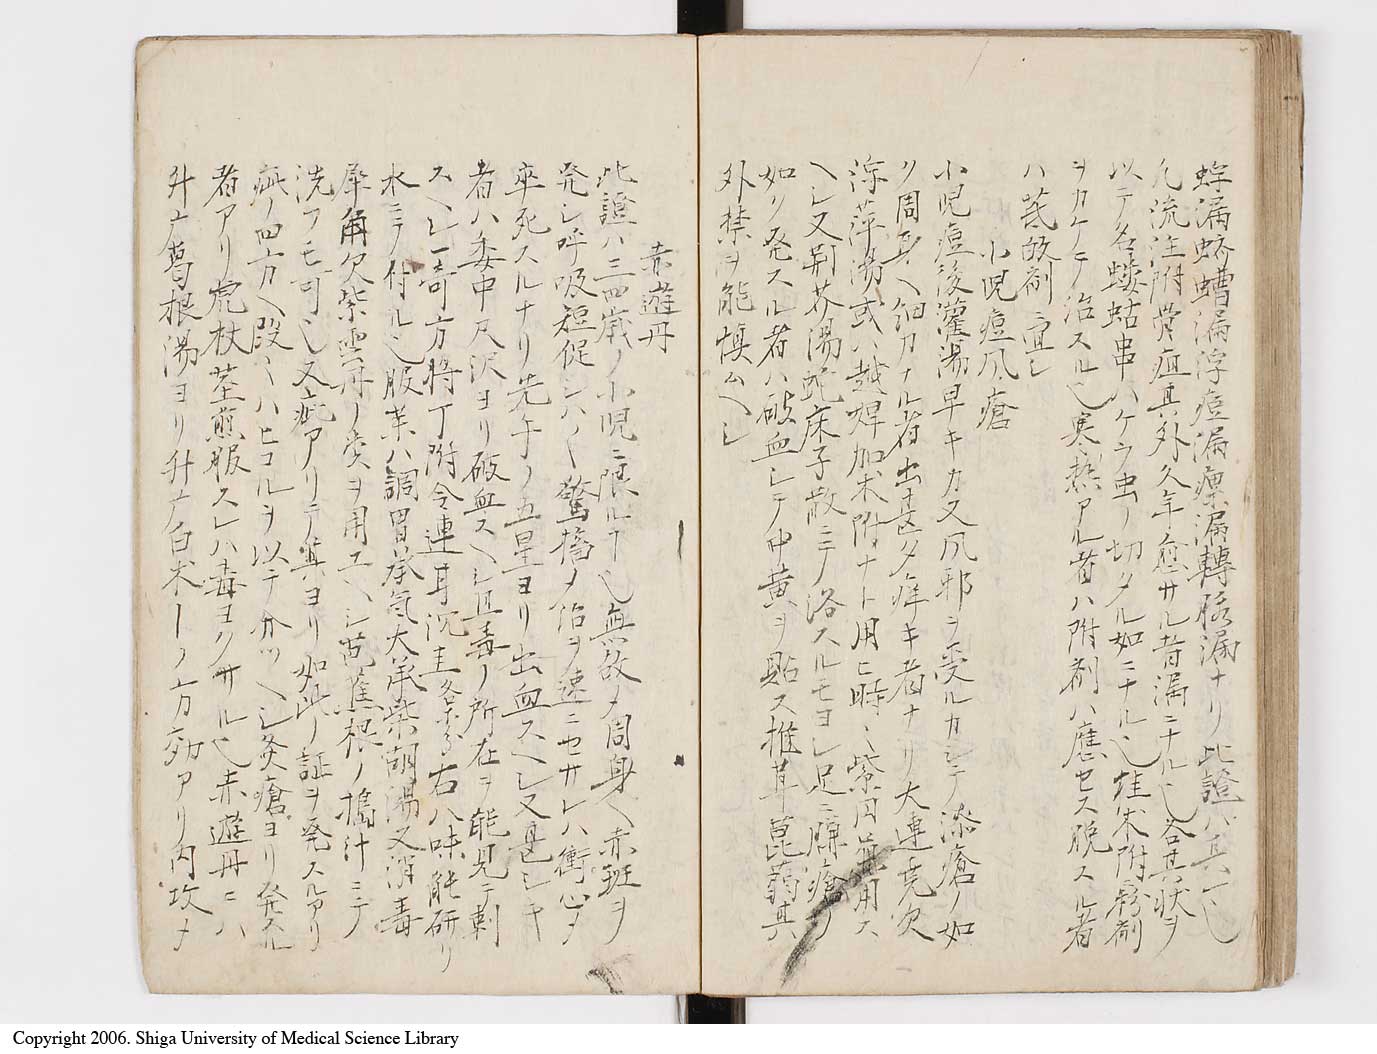 蜉漏蛴螬漏浮疽漏瘰漏轉脉漏ナリ此證ハ其一也
凡流注附骨疽其外久年愈サル者漏ニナル也各其状ヲ
以テ名螻蛄串ハケラ虫ノ切タル如ニナル也桂朮附
ヲカケテ治スル也寒熱アル者ハ附剤ハ應セス脱スル者
ハ茋皈剤ニ宜シ
小児痘風瘡
小児痘後灌湯早キカ又風邪ヲ受ルカシテ漆瘡ノ如
ク周身ヘ細カナル者出甚タ痒キ者ナリ大連堯欠
浮萍湯或ハ越婢加朮附ナト用ヒ時〻紫円兼用ス
ヘシ又荊芥湯蛇床子散ニテ洛スルモヨシ足ニ臁瘡ノ
如ク発スル者ハ破血シテ中黄ヲ貼ス推茸菎蒻其
外禁ヲ能慎ムヘシ
赤遊丹
此證ハ三四歳ノ小児ニ限ル也無故〆周身ヘ赤斑ヲ
発シ呼吸短促シハ〱驚搐〆治ヲ速ニセサレハ衝心〆
卒死スルナリ先手ノ五里ヨリ出血スヘシ又甚シキ
者ハ委中尺沢ヨリ破血スヘシ且毒ノ所在ヲ能見テ刺
スヘシ一奇方将丁附令連耳沉圭各等分右八味能研リ
水ニテ付ル也服薬ハ調胃承気大承柴胡湯又消毒
犀角欠紫雲丹ノ類ヲ用ユヘシ芭蕉根ノ搗汁ニテ
洗フモ可也又疵アリテ其ヨリ如此ノ証ヲ発スルアリ
疵ノ四方ヘ段〻ハヒコルヲ以テ分ツヘシ灸瘡ヨリ発スル
者アリ虎杖茎煎服スレハ毒ヨクサル也赤遊丹ニハ
升广葛根湯ヨリ升广白朮ーノ方効アリ内攻〆
Copyright 2006. Shiga University of Medical Science Library